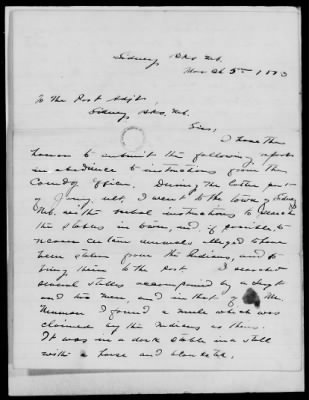 Sidney, Bks Neb.
March 5th 1883
To The Post Adjt.,
Sidney, Bks, Neb.
Sir,
I have the
honor to submit the following report
in obedience to instructions from the
Comdg Officer. During the latter part
of July, ult, I went to the town of Sidney
Neb. with verbal instructions to search
the stables in town, and, if possible, to
recover certain animals alleged to have
been stolen from the Indians, and to
bring them to the Post. I searched
several stables accompanied by a Sergt
and two men, and in that of a Mr.
I found a mule which was
claimed by the Indians as theirs.
It was in a dark stable in a stall
with a horse and blanketed.